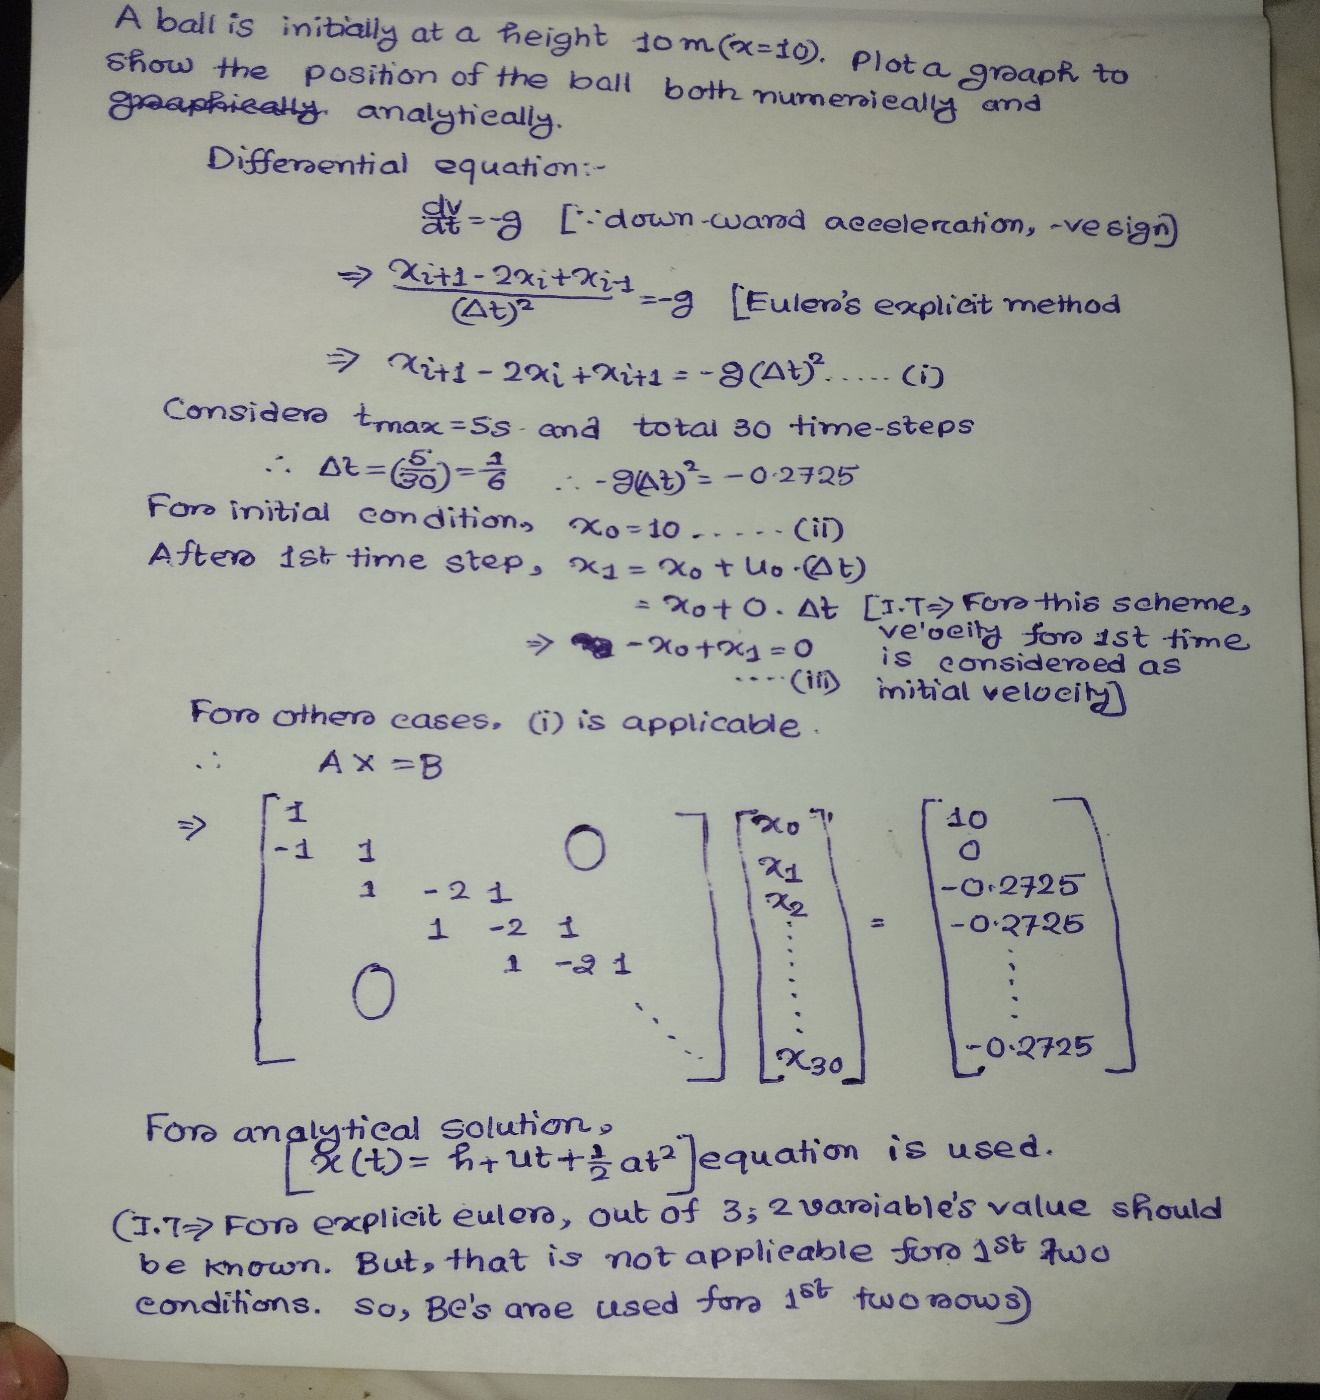 A ball is initially at a height 10m(x=10). Plot a graph to
show the position of the ball both numerically and
graphically analytically.
Differential equation:-
dv/dt = -g [∵ down-ward acceleration, -ve sign]
⇒ (x_{i+1} - 2x_i + x_{i-1})/(Δt)² = -g [Euler's explicit method
⇒ x_{i+1} - 2x_i + x_{i+1} = -g(Δt)² ...... (i)
Consider t_max = 5s and total 30 time-steps
∴ Δt = (5/30) = 1/6 ∴ -g(Δt)² = -0.2725
For initial condition, x₀ = 10 ...... (ii)
After 1st time step, x₁ = x₀ + u₀.(Δt)
= x₀ + 0. Δt [I.T⇒ For this scheme,
velocity for 1st time
⇒ -x₀ + x₁ = 0 is considered as
....(iii) initial velocity]
For other cases, (i) is applicable.
∴ AX = B
⇒ [1 x₀ 10
-1 1 0 x₁ 0
1 -2 1 x₂ = -0.2725
1 -2 1 -0.2725
1 -2 1
0
x₃₀] -0.2725]
For analytical solution,
[x(t) = h + ut + ½ at²] equation is used.
(I.T⇒ For explicit euler, out of 3; 2 variable's value should
be known. But, that is not applicable for 1st two
conditions. So, BC's are used for 1st two rows)